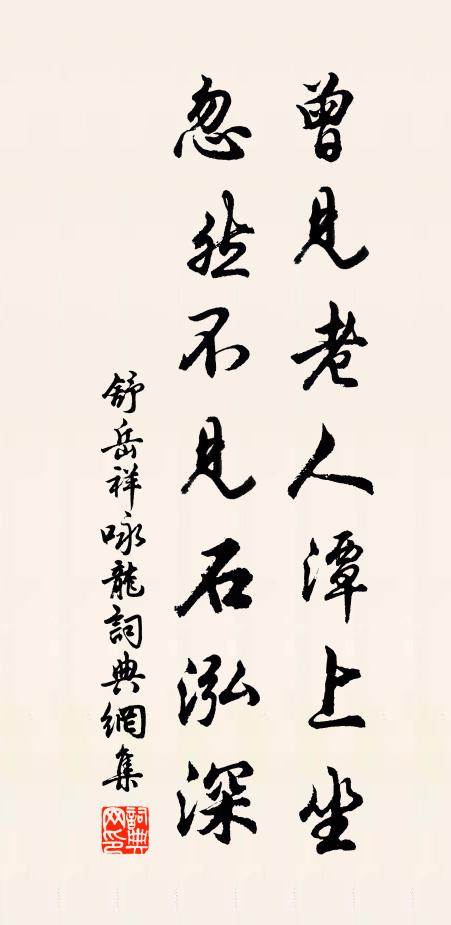 曾見老人潭上坐
忽然不見石泓深
舒岳祥咏龍詞典網集
詞典網印